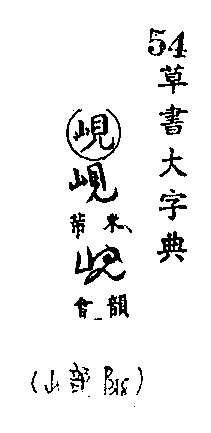 54草書大字典
峴
峴
米芾
峴
韻會
(山部